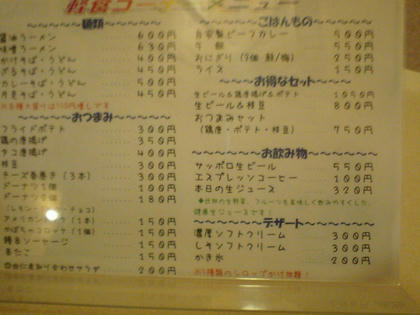 軽食コーナーメニュー
～麺類～
醤油ラーメン 600円
味噌ラーメン 630円
かけそば・うどん 400円
そば・うどん 450円
カレーそば・うどん 500円
月見そば・うどん 450円
～おつまみ～
フライドポテト 300円
鶏の唐揚 350円
タコ唐揚げ 400円
枝豆 300円
チーズ春巻き(3本) 300円
ドーナツ1個 100円
ドーナツ 180円
アメリカン (1本) 150円
かぼちゃコロッケ(1個) 150円
ソーセージ 150円
たこ 150円
200円
～ごはんもの～
自家製ビーフカレー 500円
牛飯 500円
おにぎり(1個 鮭/梅) 250円
ライス 150円
～お得なセット～
生ビール&鶏唐揚げ&ポテト 1050円
生ビール&枝豆 800円
おつまみセット
(鶏唐・ポテト・枝豆) 750円
～お飲み物～
サッポロ生ビール 550円
エスプレッソコーヒー 100円
本日の生ジュース 320円
健康生ジュースです!
～デザート～
濃厚ソフトクリーム 300円
レギソフトクリーム 300円
かき氷 200円